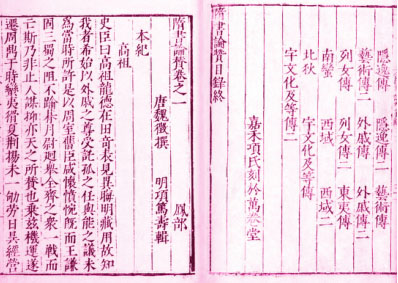 隱逸傳　隱逸傳二　藝術傳
藝術傳二　外戚傳　外戚傳二
列女傳　列女傳二　東夷傳
南蠻　西域　西域二
北狄　宇文化及等傳
宇文化及等傳二
嘉禾項氏刻於萬卷堂
隋書論贊目錄終
隋書論贊卷之一
唐魏徵撰　明項篤壽輯　鳳部
本紀
高祖
史臣曰高祖龍德在田奇表見異晦明藏用故知
我者希始以外戚之尊受託孤之任與能之議未
為當時所許是以周室舊臣咸懷憤惋既而王謙
固三蜀之阻不踰朞月尉迥舉全齊之衆一戰而
亡斯乃非止人謀抑亦天之所贊也乘茲機運遂
遷周鼎于時蠻夷猾夏荊揚未一劬勞日昃經營